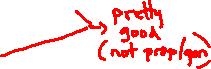 pretty
good
(not prop/gon)